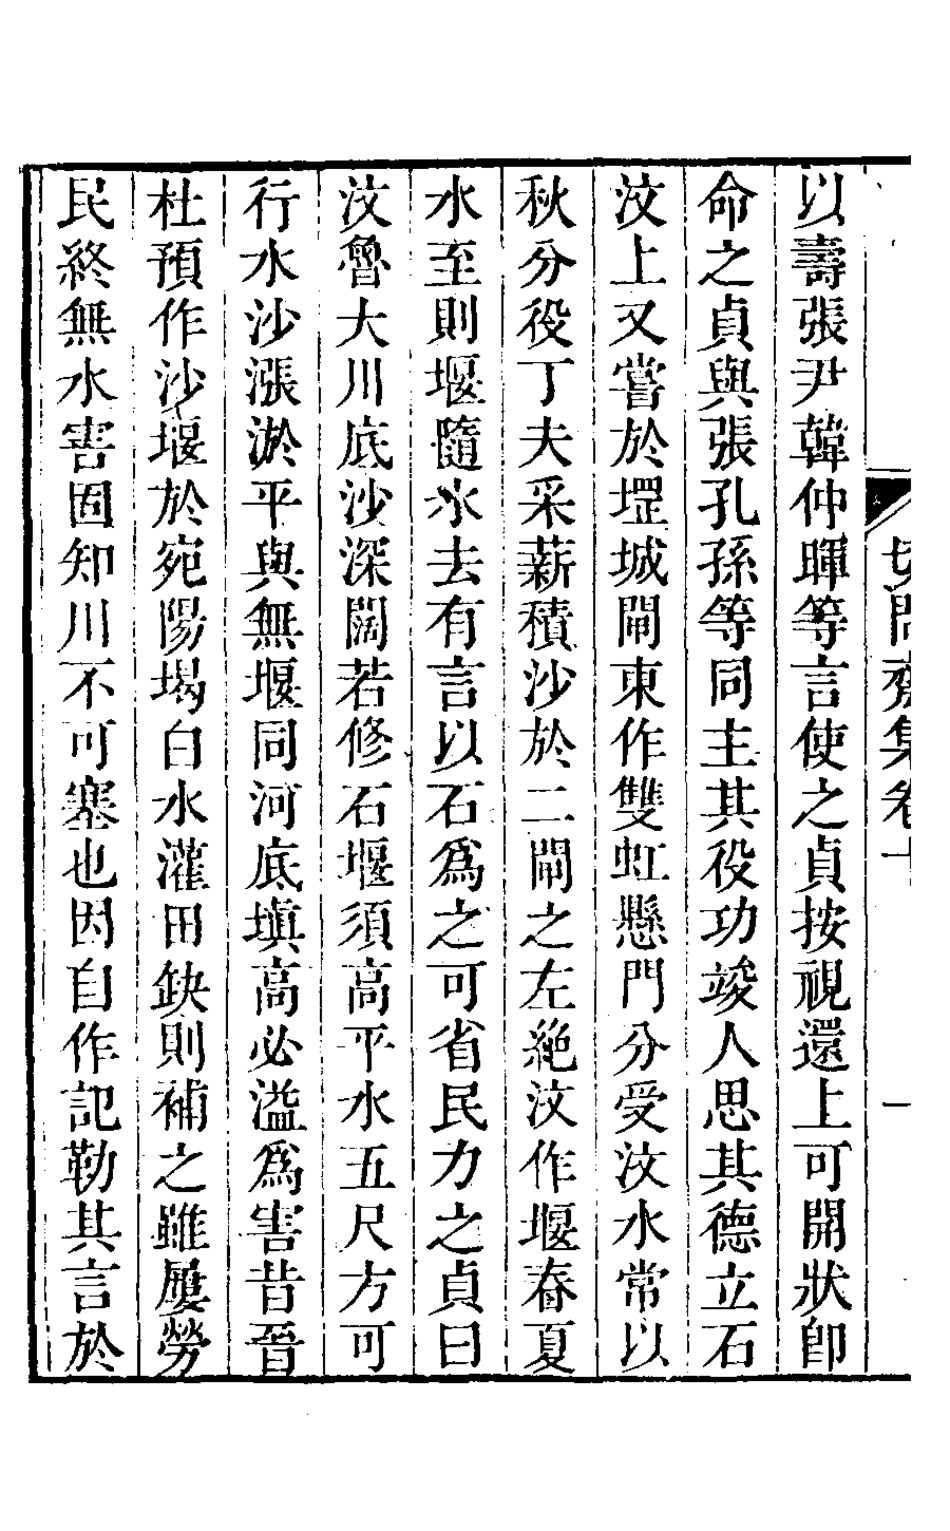 切問齋集卷十
一
以壽張尹韓仲暉等言使之貞按視還上可開狀卽
命之貞與張孔孫等同主其役功竣人思其德立石
汶上又嘗於堽城閘東作雙虹懸門分受汶水常以
秋分役丁夫采薪積沙於二閘之左絶汶作堰春夏
水至則堰隨水去有言以石爲之可省民力之貞曰
汶魯大川底沙深闊若修石堰須高平水五尺方可
行水沙漲淤平與無堰同河底塡高必溢爲害昔晉
杜預作沙堰於宛陽堨白水灌田缺則補之雖屢勞
民終無水害固知川不可塞也因自作記勒其言於